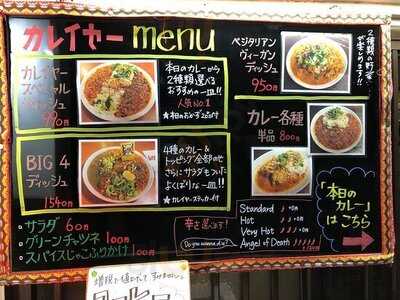 カレイヤー menu
カレイヤー
スペシャル
ディッシュ
990円
本日のカレーから
2種類選べる
おすすめの一皿!!
人気No.1
★本日のおかず2品つき
BIG 4
ディッシュ
1540円
4種のカレー&
トッピング全部のせ
さらにサラダもついた
よくばりな一皿!!
★カレイヤーステッカー付
・サラダ 60円
・グリーンチャツネ 100円
・スパイスじゃこふりかけ 100円
ベジタリアン
ヴィーガン
ディッシュ
950円
2種類の野菜
が楽しめます!!
カレー各種
単品 800円
辛さ選べます!
Do you wanna die?
Standard
Hot
Very Hot
Angel of Death
「本日の
カレー」
はこちら